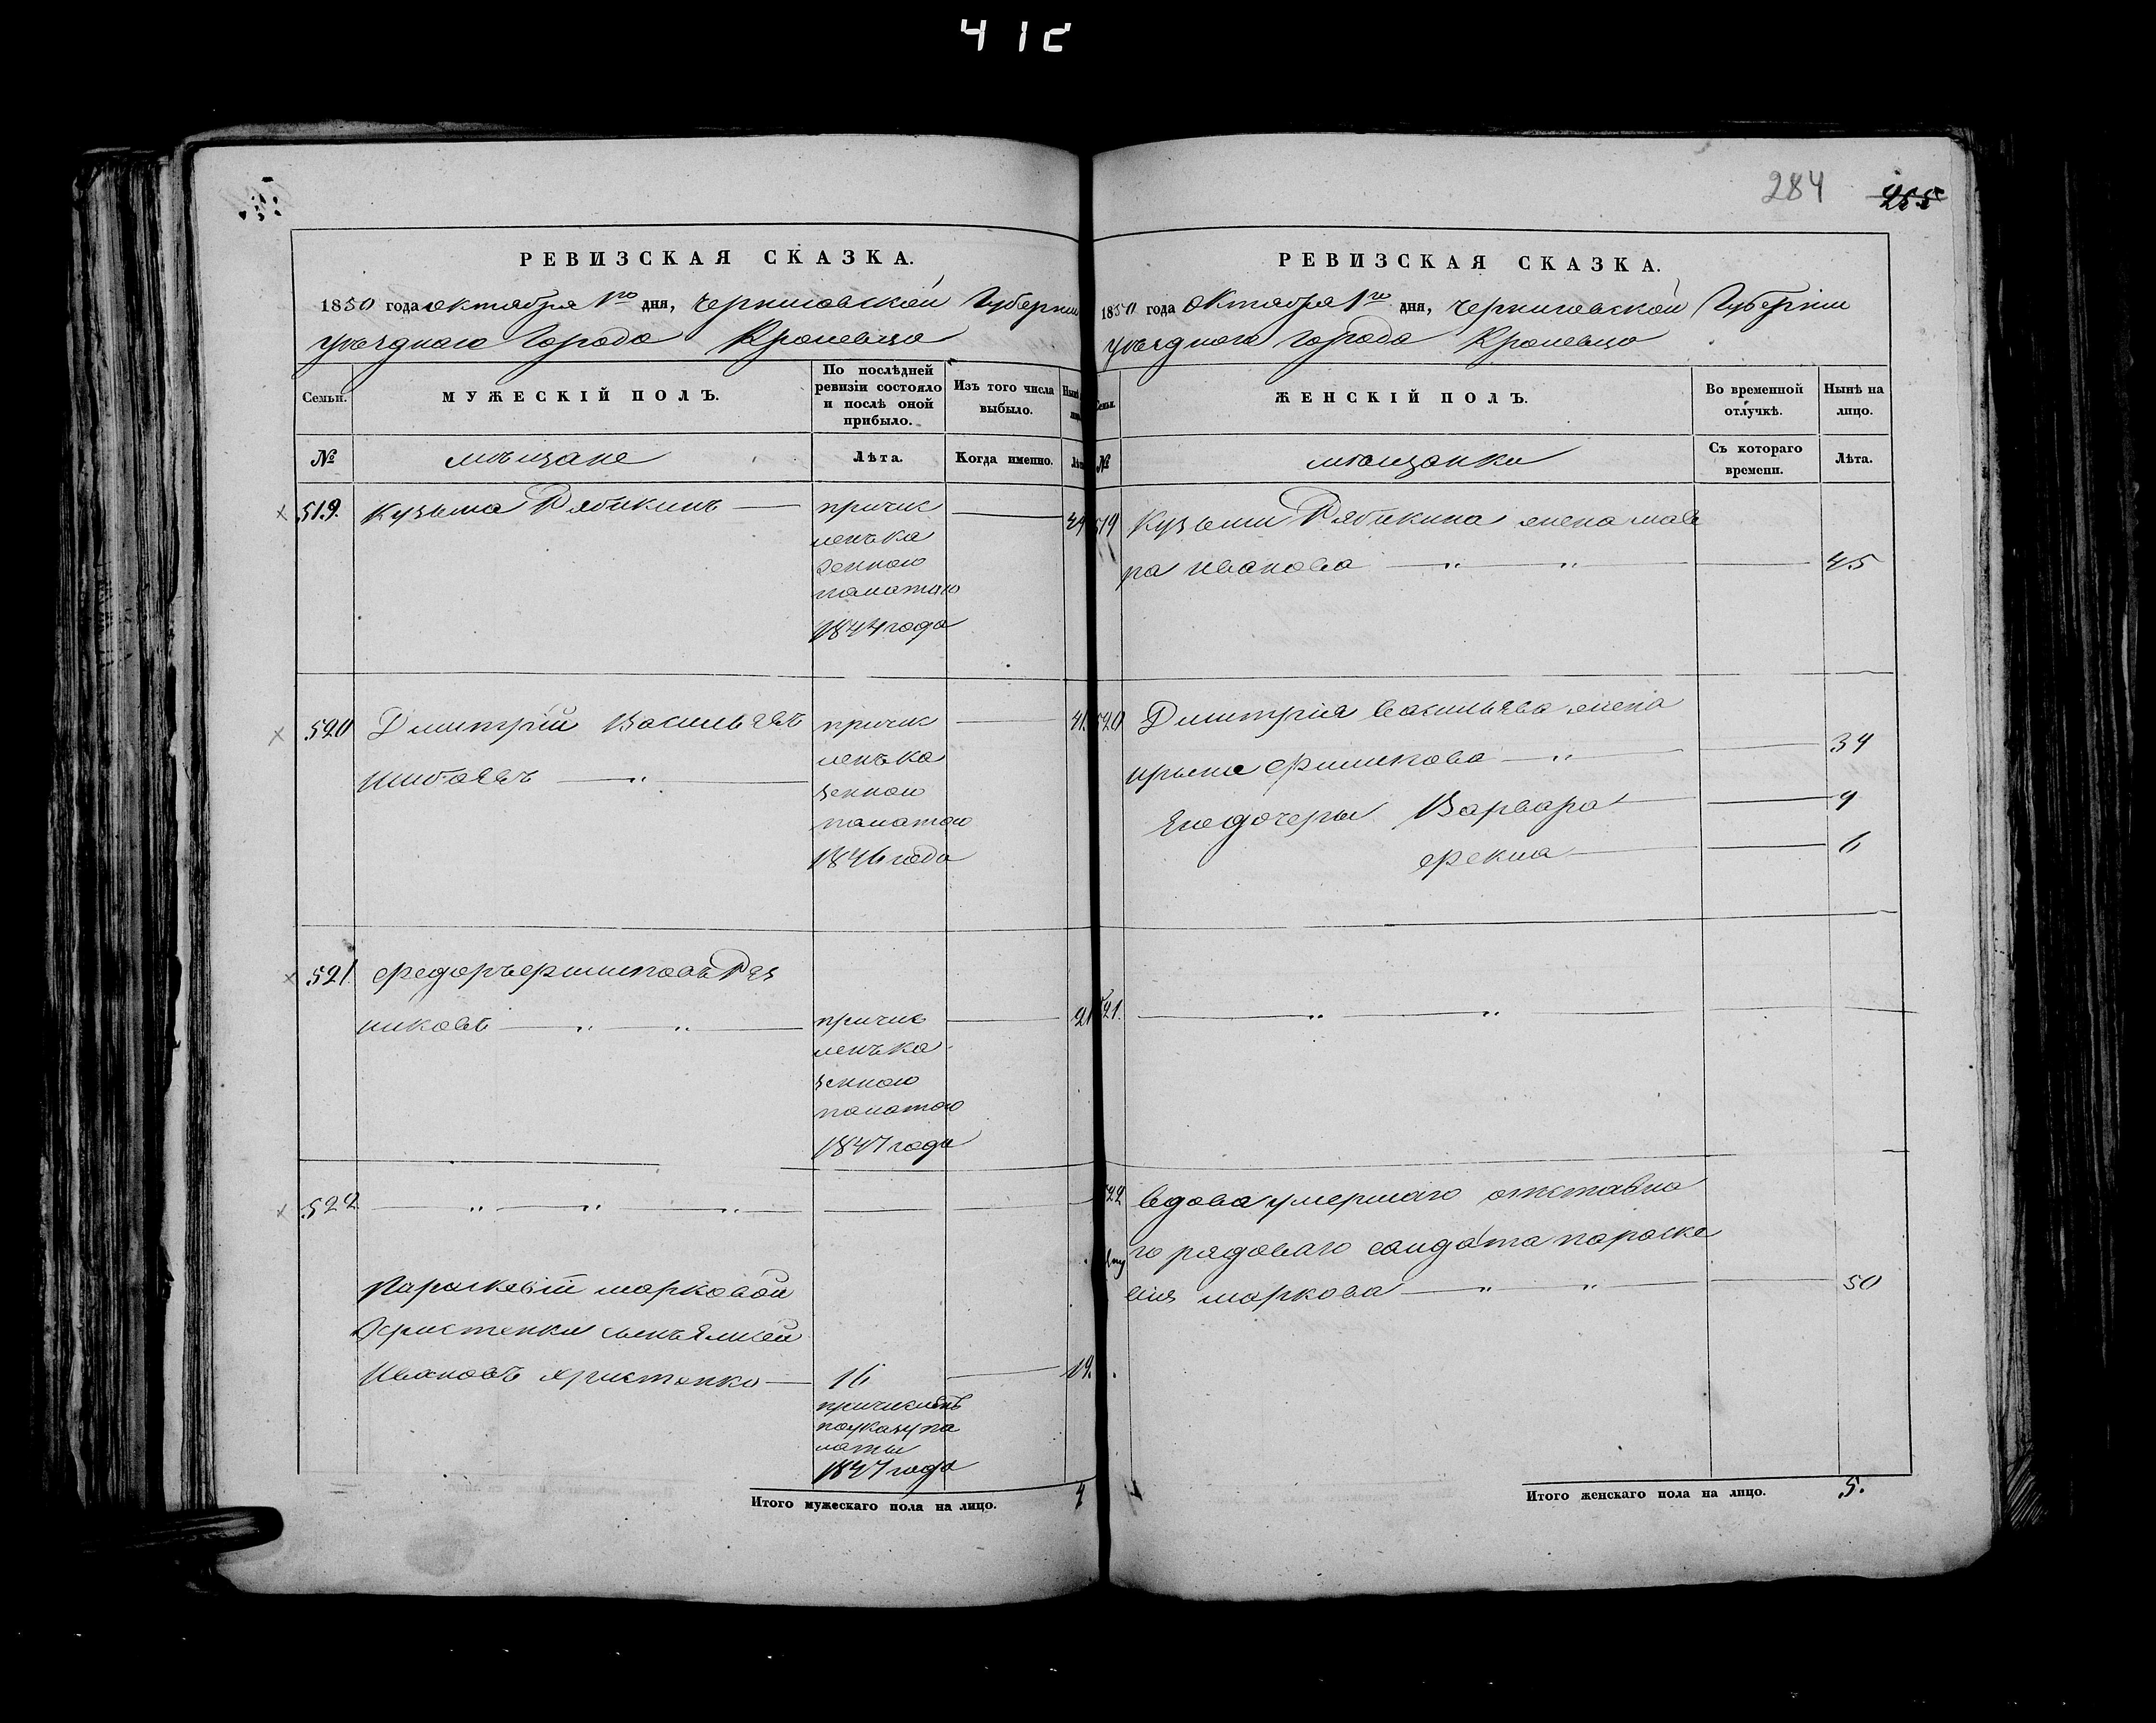 41c
284 255
РЕВИЗСКАЯ СКАЗКА.
1850 года октября 1го дня, Черниговской Губернии
уѣзднаго Города Кролевца
Семьи.
МУЖЕСКІЙ ПОЛЪ.
По послѣдней ревизіи состояло и послѣ оной прибыло.
Изъ того числа выбыло.
№
мѣщане
Лѣта.
Когда именно.
519. Кузьма Рябикинъ
причис
ленъ ка
зенною
палатою
1844 года
520 Дмитрій Васильевъ
причис
41.
Шибаевъ
ленъ ка
зенною
палатою
1846 года
521 Федоръ Филиповъ Рѣз
никовъ
причис
21
ленъ ка
зенною
палатою
1847 года
522
Параскевіи Марковой
Христенки сынъ Алисей
Ивановъ Христенко
16
19.
причисленъ
по указу па
латы
1847 года
Итого мужескаго пола на лицо. 4
РЕВИЗСКАЯ СКАЗКА.
1850 года Октября 1го дня, Черниговской Губерніи
уѣзднаго Города Кролевца
Семьи.
ЖЕНСКІЙ ПОЛЪ.
Во временной отлучкѣ.
Нынѣ на лицо.
№
мѣщанки
Съ котораго времени.
Лѣта.
519 Кузьмы Рябикина жена Мав
ра Иванова 45
520 Дмитрія Васильева жена
Ирына Филипова 34
Его дочеры Варвара 9
Фекла 6
521.
522 вдова умершаго отставна
го рядоваго салдата Параске
вія Маркова 50
Итого женскаго пола на лицо. 5.